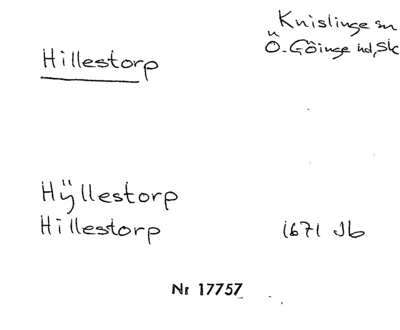 Hillestorp
Knislinge sn
Ö. Göinge hd, Sk
Hÿllestorp
Hillestorp 1671 Jb
Nr 17757